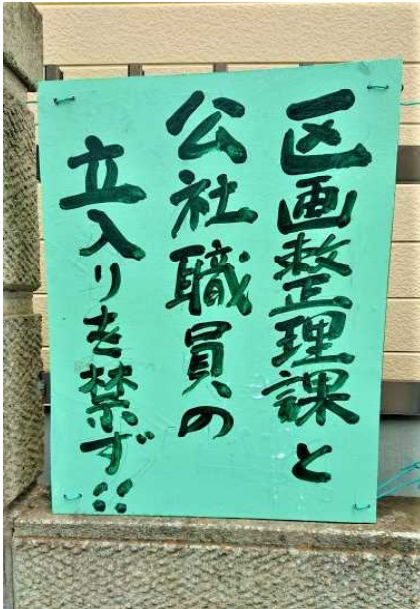 区画整理課と
公社職員の
立入りを禁ず!!